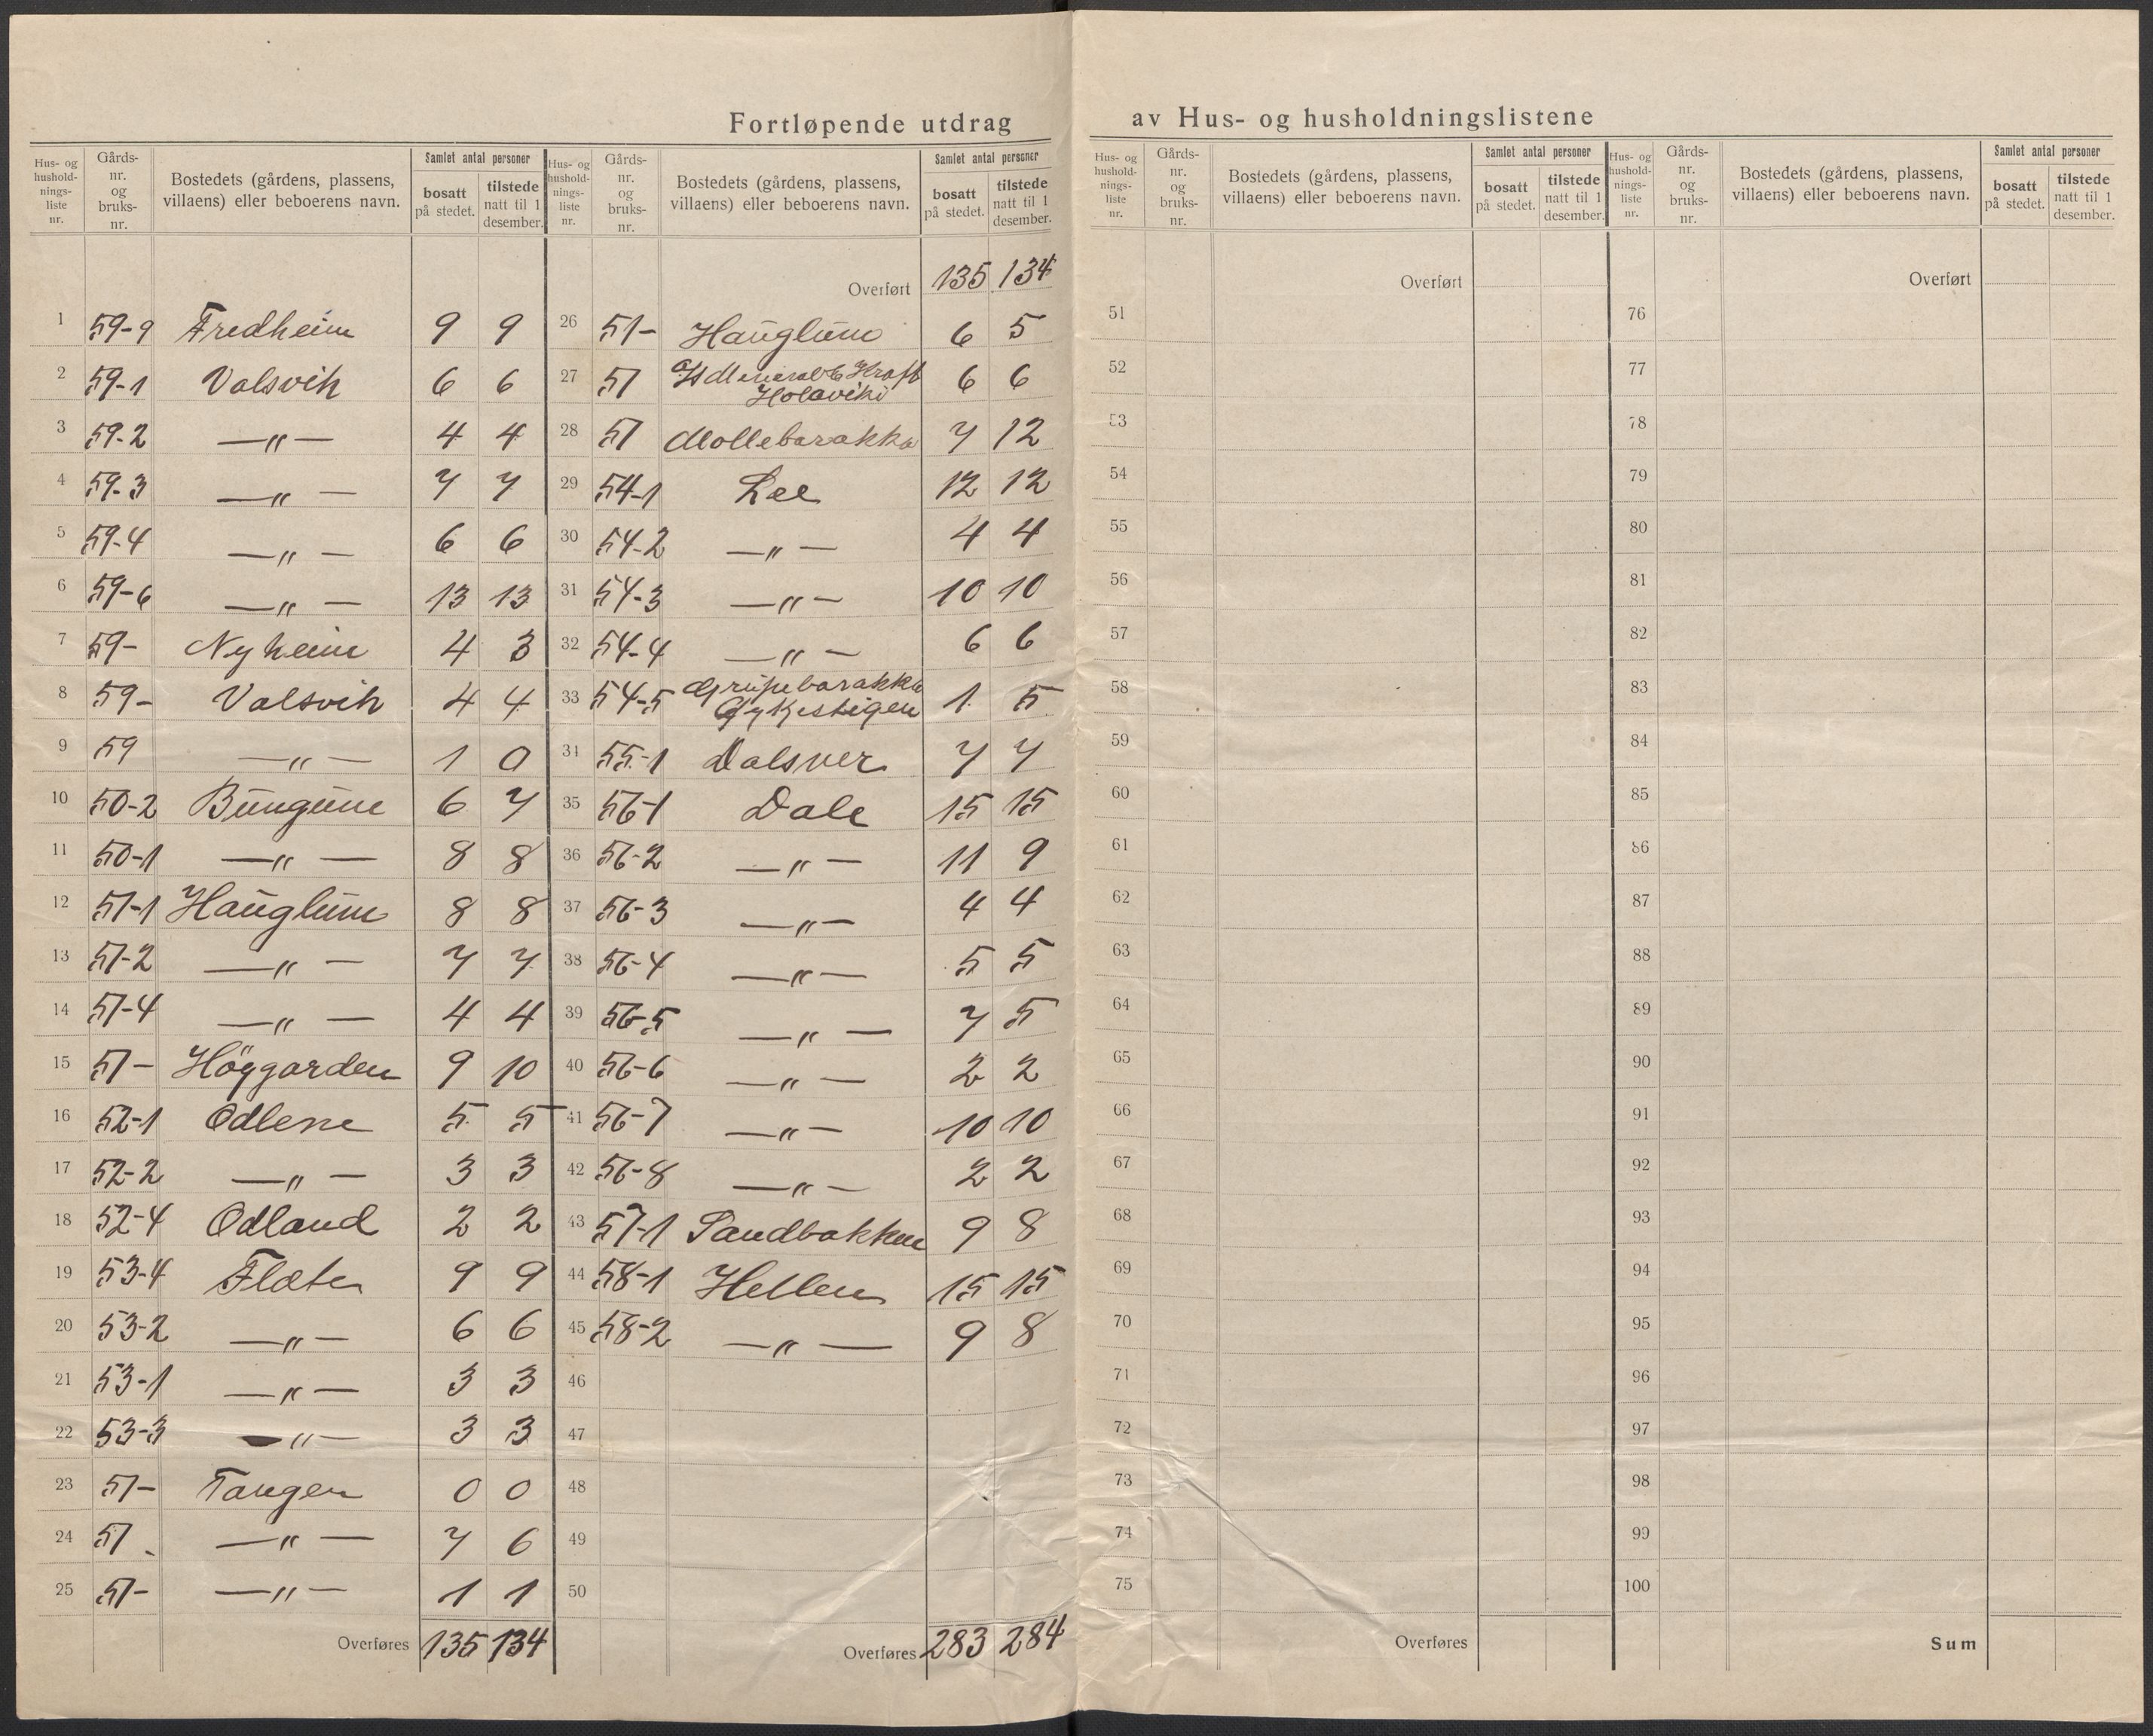 Fortløpende utdrag av Hus- og husholdningslistene
Hus- og hushold-nings-liste nr. | Gårds-nr. og bruks-nr. | Bostedets (gårdens, plassens, villaens) eller beboerens navn. | Samlet antal personer | bosatt på stedet. | tilstede natt til 1 desember.
1 59-9 Fredheim 9 9
2 59-1 Valsvik 6 6
3 59-2 —"— 4 4
4 59-3 —"— 7 7
5 59-4 —"— 6 6
6 59-6 —"— 13 13
7 59- Nyheim 4 3
8 59- Valsvik 4 4
9 59 —"— 1 0
10 50-2 Bungum 6 7
11 50-1 —"— 8 8
12 51-1 Hauglum 8 8
13 51-2 —"— 7 7
14 51-4 —"— 4 4
15 51- Höggarden 9 10
16 52-1 Odlene 5 5
17 52-2 —"— 3 3
18 52-4 Odland 2 2
19 53-4 Flæte 9 9
20 53-2 —"— 6 6
21 53-1 —"— 3 3
22 53-3 —"— 3 3
23 51- Tangen 0 0
24 51 - —"— 7 6
25 51- —"— 1 1
Overføres 135 134
Hus- og hushold-nings-liste nr. | Gårds-nr. og bruks-nr. | Bostedets (gårdens, plassens, villaens) eller beboerens navn. | Samlet antal personer | bosatt på stedet. | tilstede natt til 1 desember.
Overført 135 134
26 51- Hauglum 6 5
27 51 Kraft
6 6
28 51 Mollebarakka 7 12
29 54-1 Lee 12 12
30 54-2 —"— 4 4
31 54-3 —"— 10 10
32 54-4 —"— 6 6
33 54-5 Grupebarakka
Gykestigen 1 5
34 55-1 Dalsver 7 7
35 56-1 Dale 15 15
36 56-2 —"— 11 9
37 56-3 —"— 4 4
38 56-4 —"— 5 5
39 56-5 —"— 7 5
40 56-6 —"— 2 2
41 56-7 —"— 10 10
42 56-8 —"— 2 2
43 57-1 Sandbakken 9 8
44 58-1 Hellen 15 15
45 58-2 —"— 9 8
46
47
48
49
50
Overføres 283 284
Hus- og hushold-nings-liste nr. | Gårds-nr. og bruks-nr. | Bostedets (gårdens, plassens, villaens) eller beboerens navn. | Samlet antal personer | bosatt på stedet. | tilstede natt til 1 desember.
Overført
51
52
53
54
55
56
57
58
59
60
61
62
63
64
65
66
67
68
69
70
71
72
73
74
75
Overføres
Hus- og hushold-nings-liste nr. | Gårds-nr. og bruks-nr. | Bostedets (gårdens, plassens, villaens) eller beboerens navn. | Samlet antal personer | bosatt på stedet. | tilstede natt til 1 desember.
Overført
76
77
78
79
80
81
82
83
84
85
86
87
88
89
90
91
92
93
94
95
96
97
98
99
100
Sum